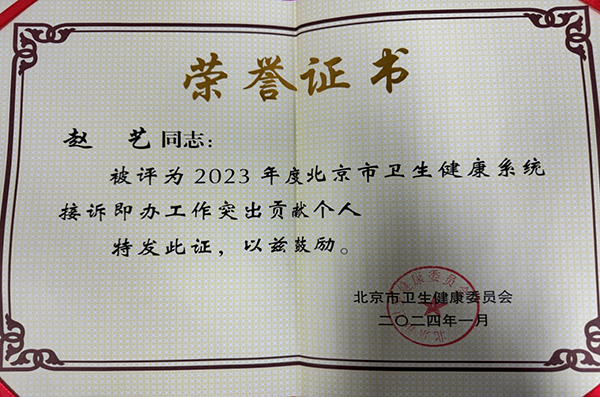 荣誉证书
赵 艺 同志：
被评为 2023 年度北京市卫生健康系统
接诉即办工作突出贡献个人
特发此证，以兹鼓励。
北京市卫生健康委员会
二〇二四年一月